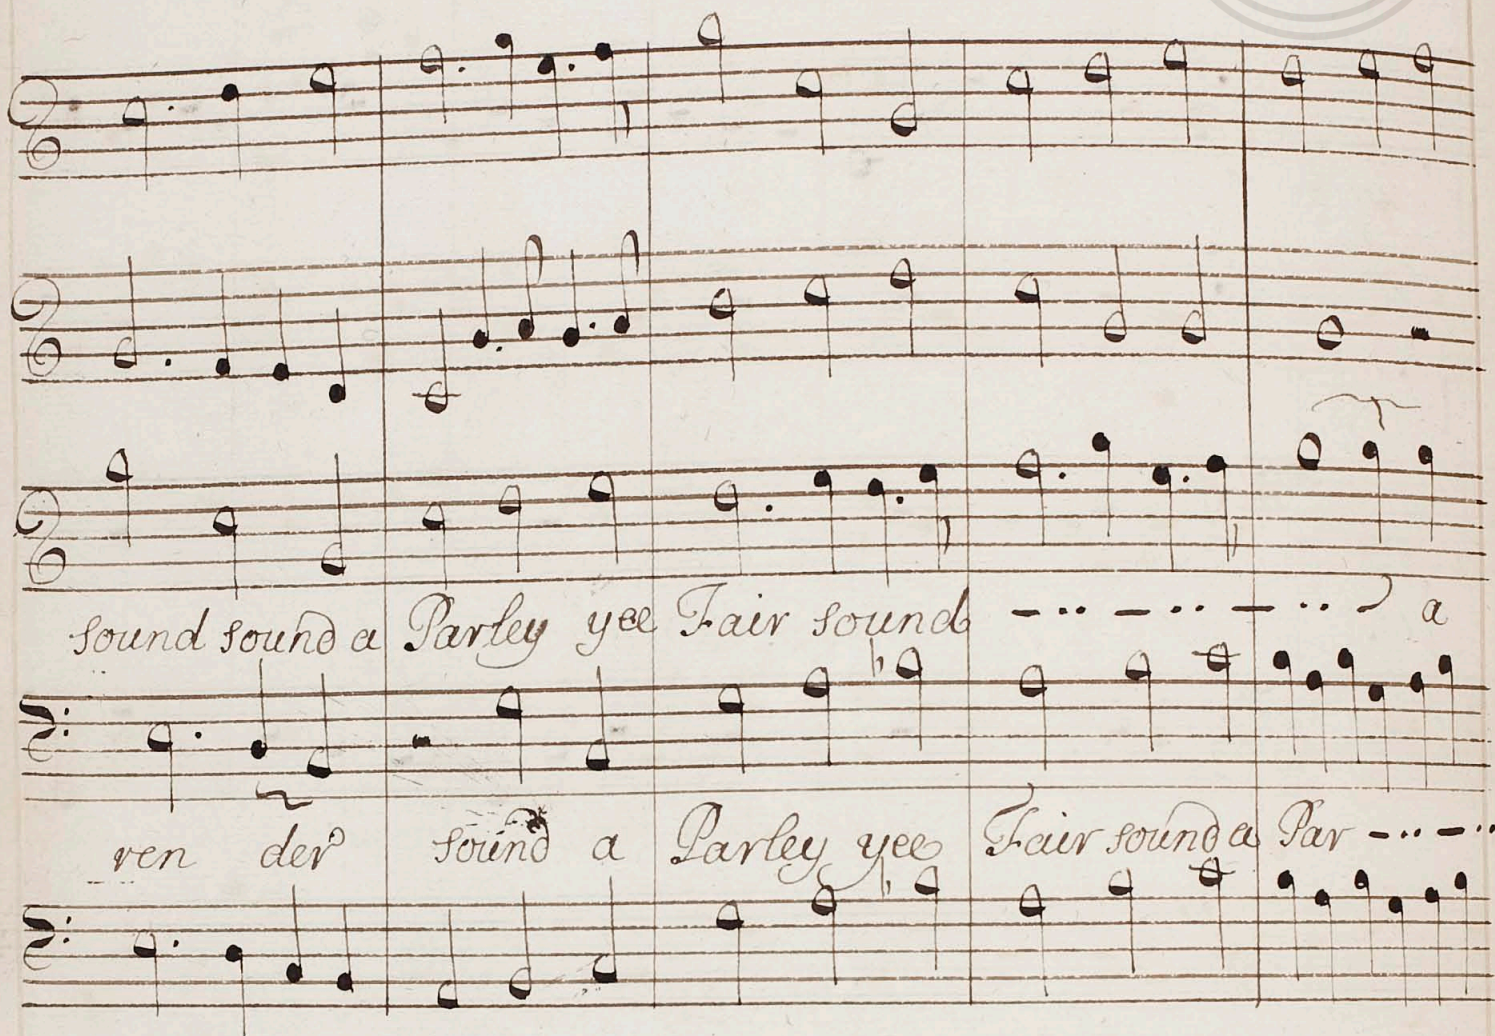 sound sound a Parley yee Fair sound -··-··-·· a
ren der sound a Parley yee Fair sound a Par -··-··